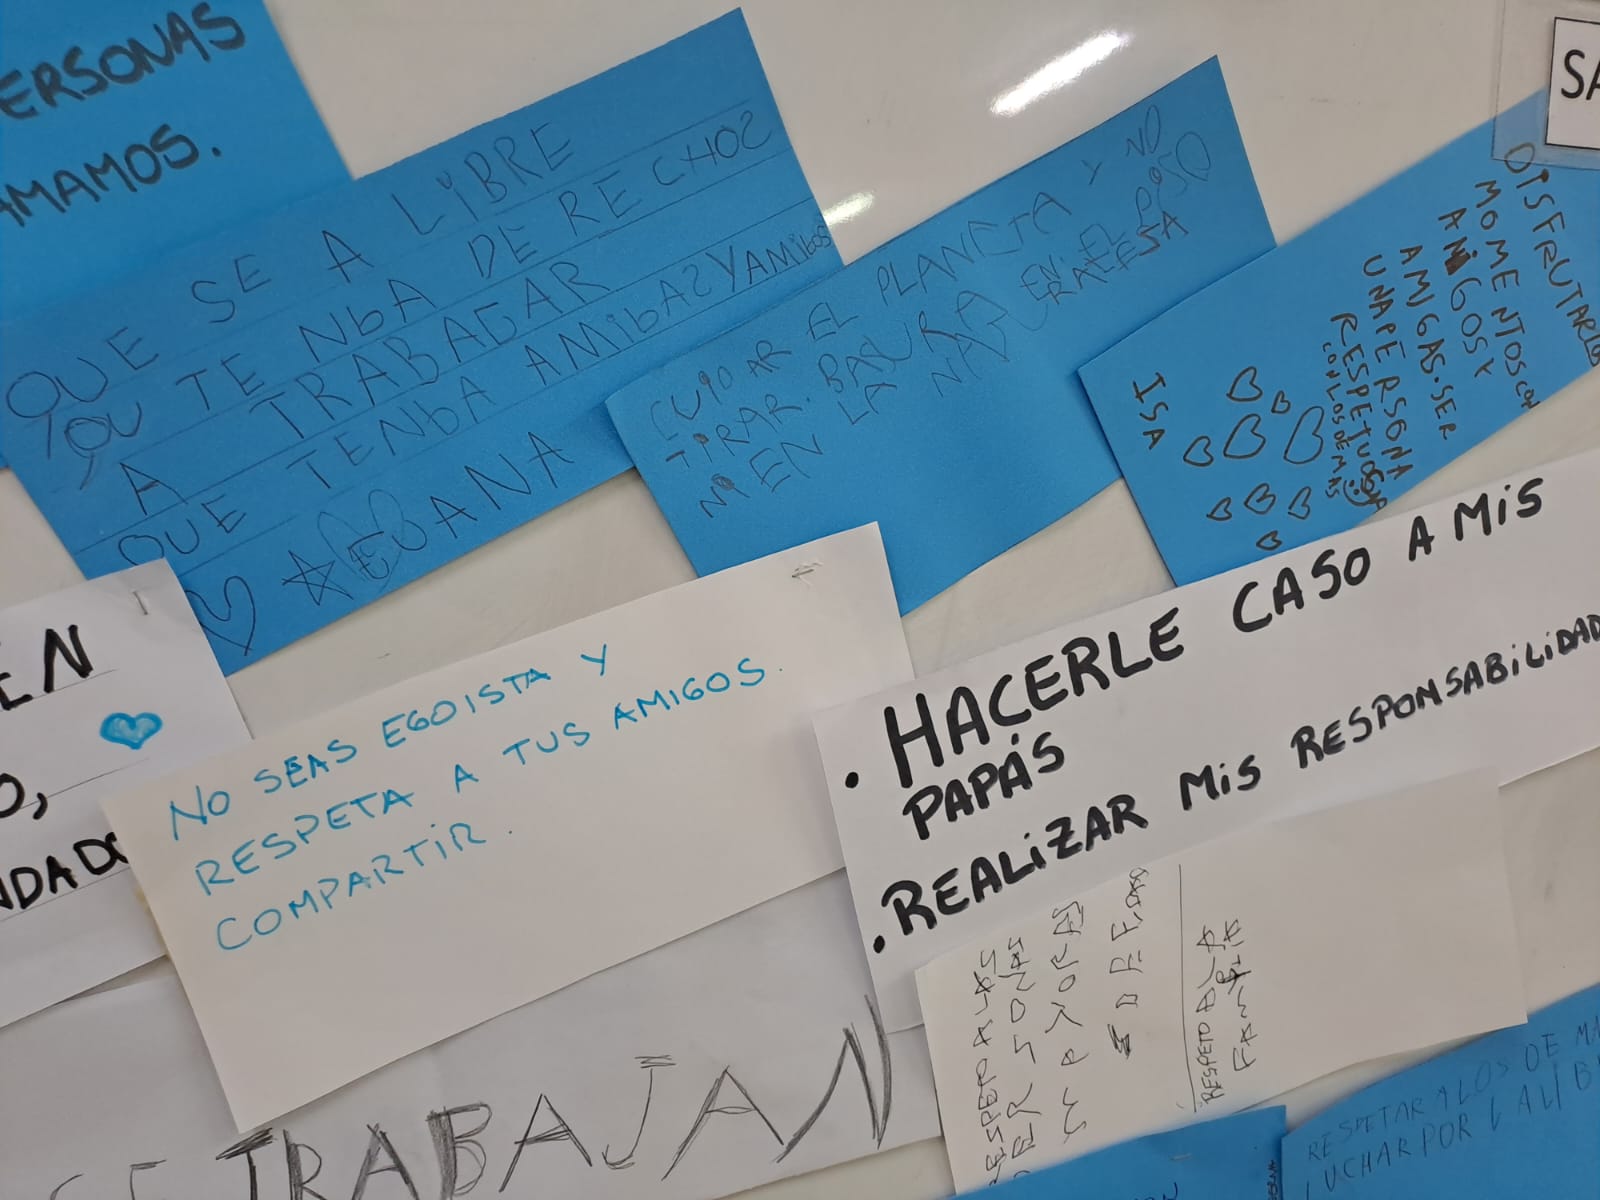 ERSONAS
AMAMOS.
QUE SE A LiBRE
YOU TE NbA DE RE CHOS
A TRABAGAR
QUE TENbA AMibAS YAMibos
ANA
CUiDAR EL PLANETA Y NO
TiRAR. BASURA EN EL PiSO
Ni EN LA NATURALESA
DiSFRUTAR LOS
MOMENTOS CON
AMiGOS Y
AMiGAS. SER
UNA PERSONA
RESPETUOSA
CON LOS DEMAS
ISA
SA
EN
O,
NDADO
NO SEAS EGOISTA Y
RESPETA A TUS AMIGOS.
COMPARTiR.
• HACERLE CASO A MiS
PAPÁS
• REALiZAR MiS RESPONSABiLiDAD
RESPETO A LAS
PER SONAS
MAYORAS
DE EDAD
RESPETO A LA
FAMiLiA
SE TRABAJAN
RESPETAR A LOS DE MA
LUCHAR POR L A LiB